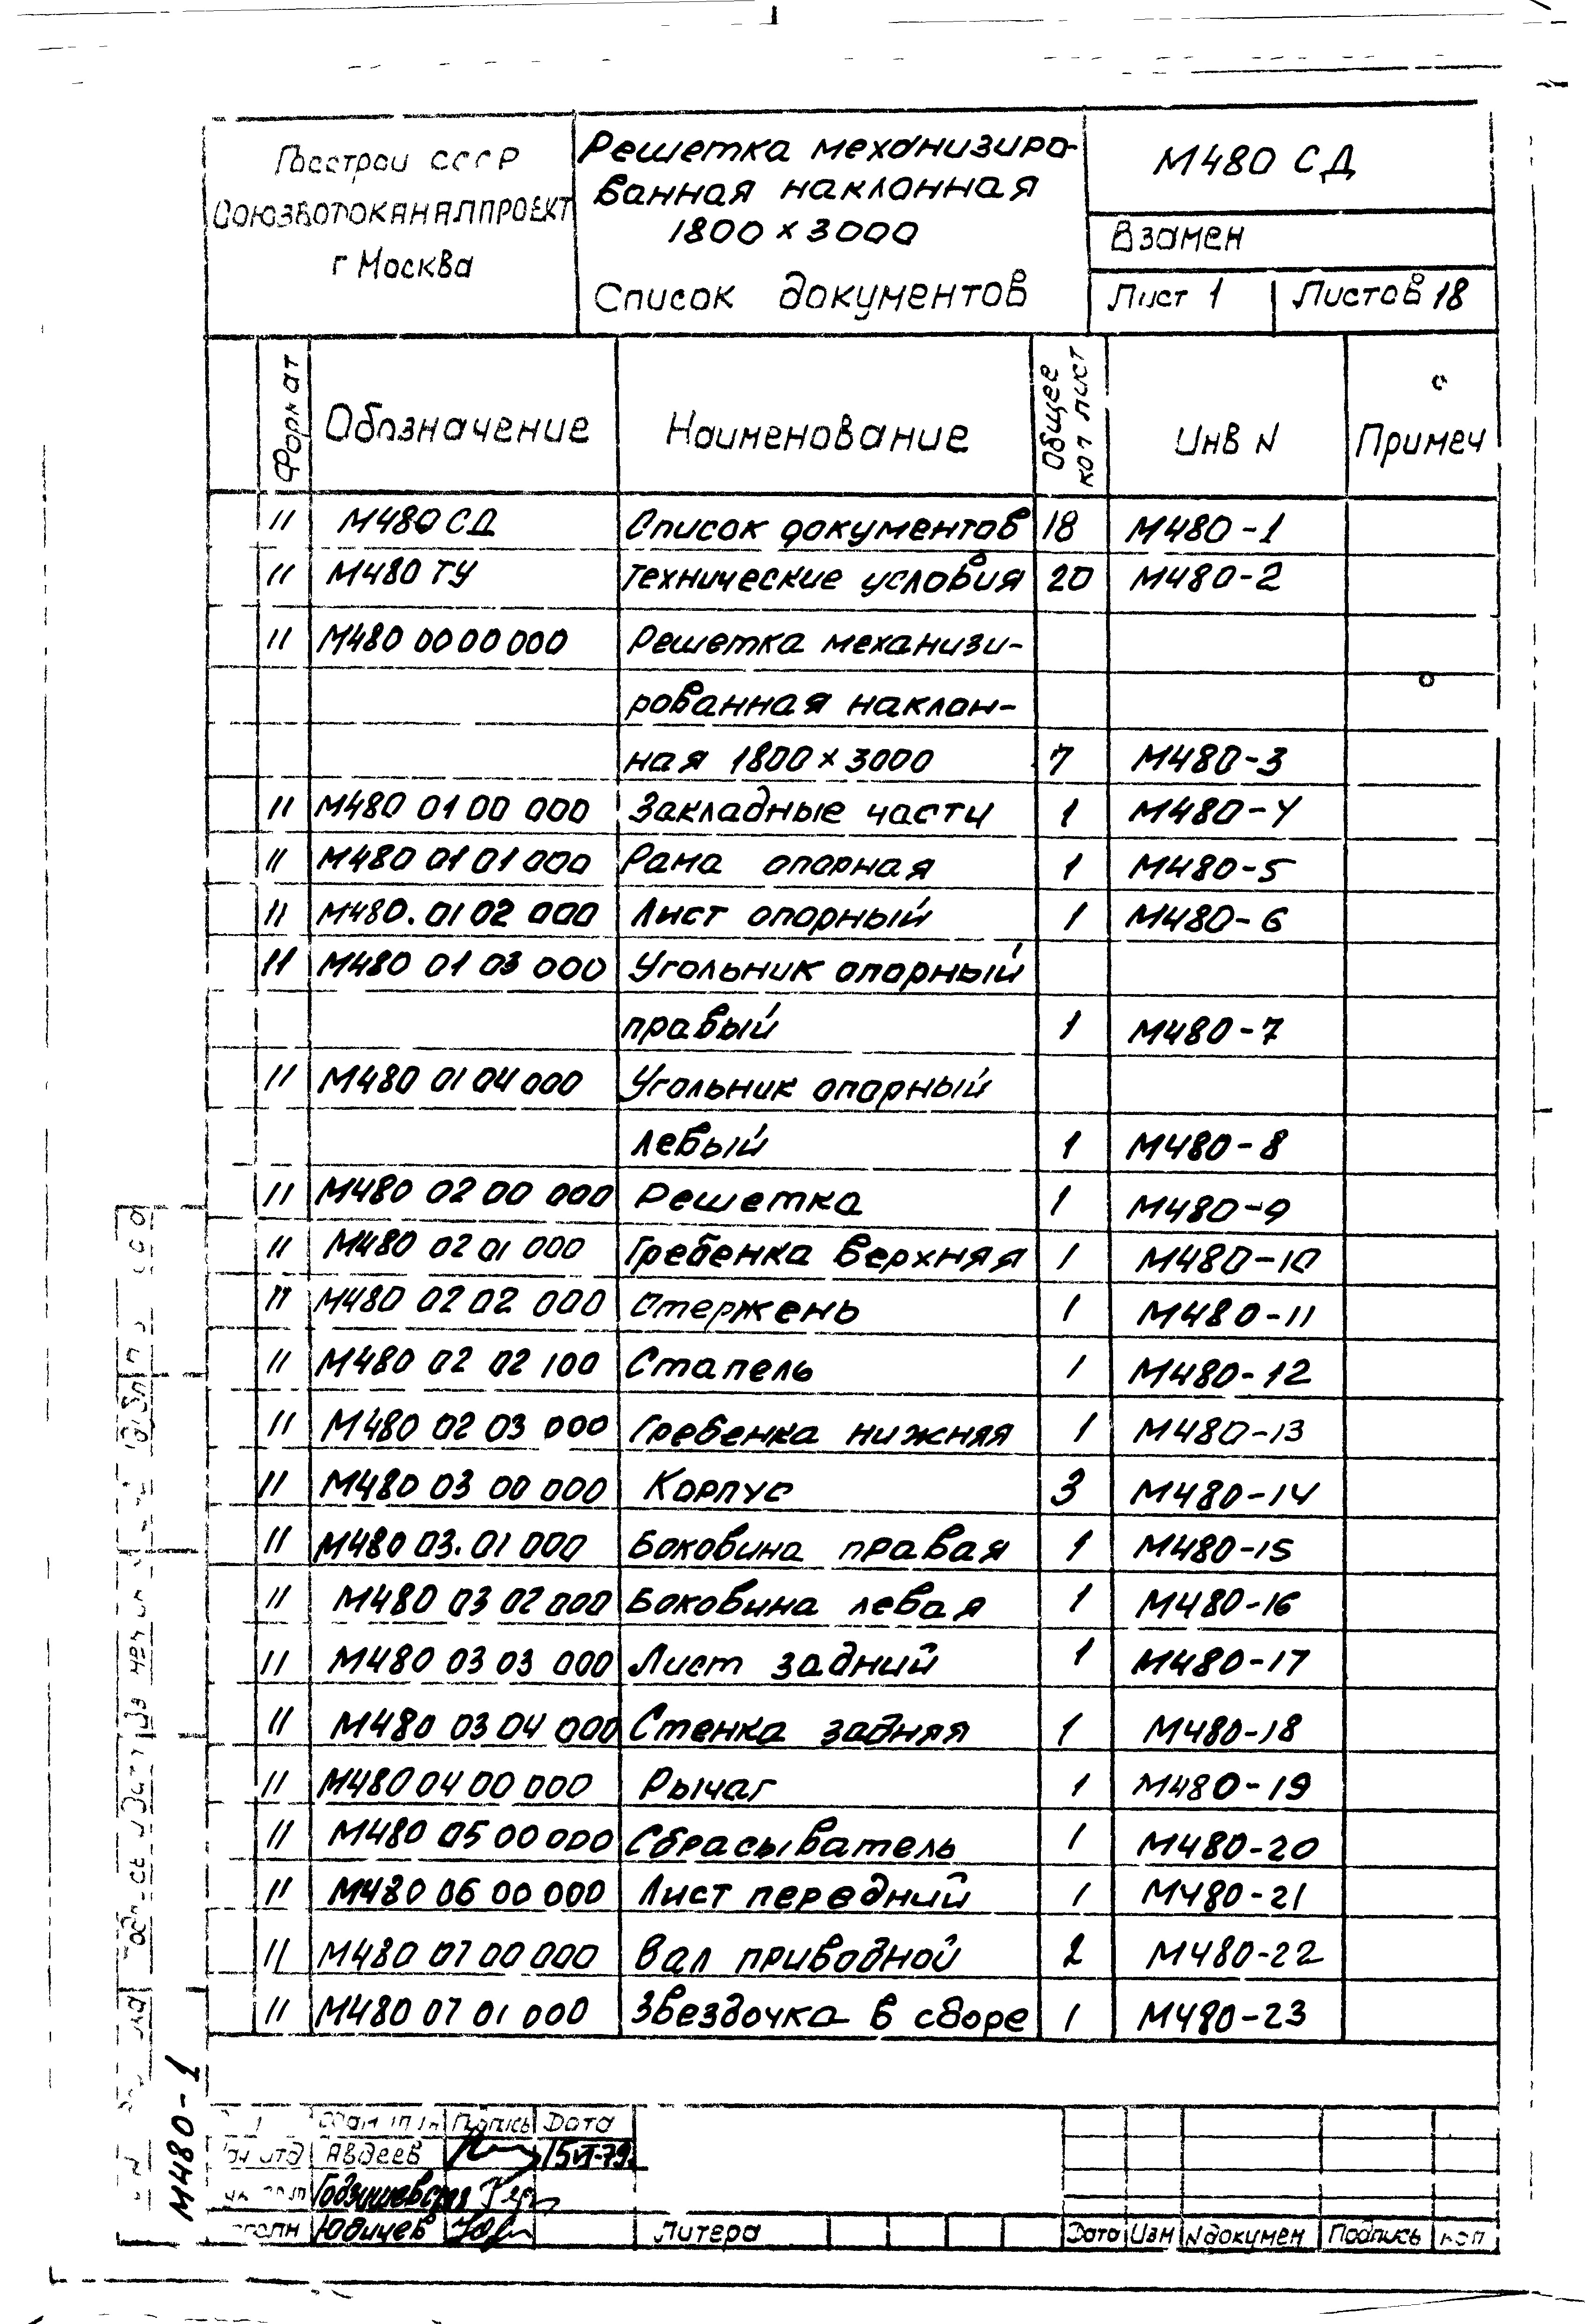 Госстрои СССР
СОЮЗВОДОКАНАЛПРОЕКТ
г Москва
Решетка механизиро-
ванная наклонная
1800 х 3000
Список документов
М480 СД
Взамен
Лист 1
Листов 18
Формат
Обозначение
Наименование
Общее
кол лист
Инв N
Примеч
11 М480 СД Список документов 18 М480-1
11 М480 ТУ Технические условия 20 М480-2
11 М480 00 00 000 Решетка механизи-
рованная наклон-
ная 1800 х 3000 7 М480-3
11 М480 01 00 000 Закладные части 1 М480-4
11 М480 01 01 000 Рама опорная 1 М480-5
11 М480.01 02 000 Лист опорный 1 М480-6
11 М480 01 03 000 Угольник опорный
правый 1 М480-7
11 М480 01 04 000 Угольник опорный
левый 1 М480-8
11 М480 02 00 000 Решетка 1 М480-9
11 М480 02 01 000 Гребенка верхняя 1 М480-10
11 М480 02 02 000 Стержень 1 М480-11
11 М480 02 02 100 Стапель 1 М480-12
11 М480 02 03 000 Гребенка нижняя 1 М480-13
11 М480 03 00 000 Корпус 3 М480-14
11 М480 03.01 000 Боковина правая 1 М480-15
11 М480 03 02 000 Боковина левая 1 М480-16
11 М480 03 03 000 Лист задний 1 М480-17
11 М480 03 04 000 Стенка задняя 1 М480-18
11 М480 04 00 000 Рычаг 1 М480-19
11 М480 05 00 000 Сбрасыватель 1 М480-20
11 М480 06 00 000 Лист передний 1 М480-21
11 М480 07 00 000 Вал приводной 2 М480-22
11 М480 07 01 000 Звездочка в сборе 1 М480-23
М480-1
Подпись Дата
Авдеев 15 VI-79
Юдичев
Литера
Дата Изм N докумен Подпись